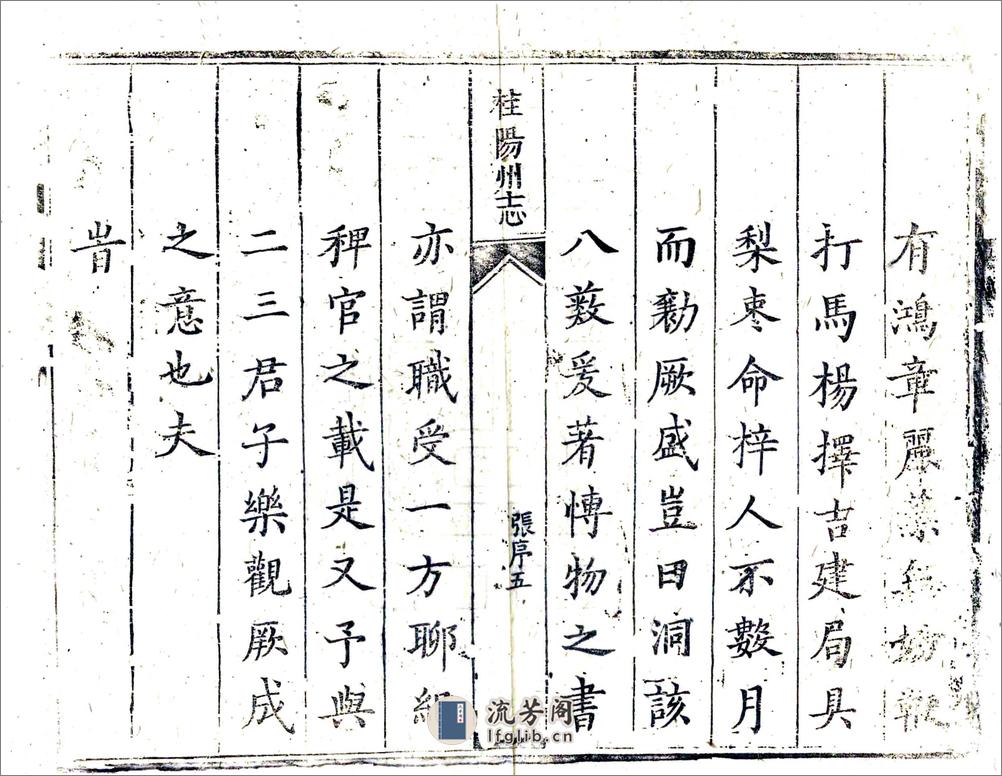 有鴻章麗藻
打馬楊擇吉建局具
梨枣命梓人不數月
而勷厥盛豈曰洞該
八薮爰著慱物之書
桂陽州志
張序五
亦謂職受一方聊
稗官之載是又予與
二三君子樂觀厥成
之意也夫
旹
流芳阁
lfglib.cn